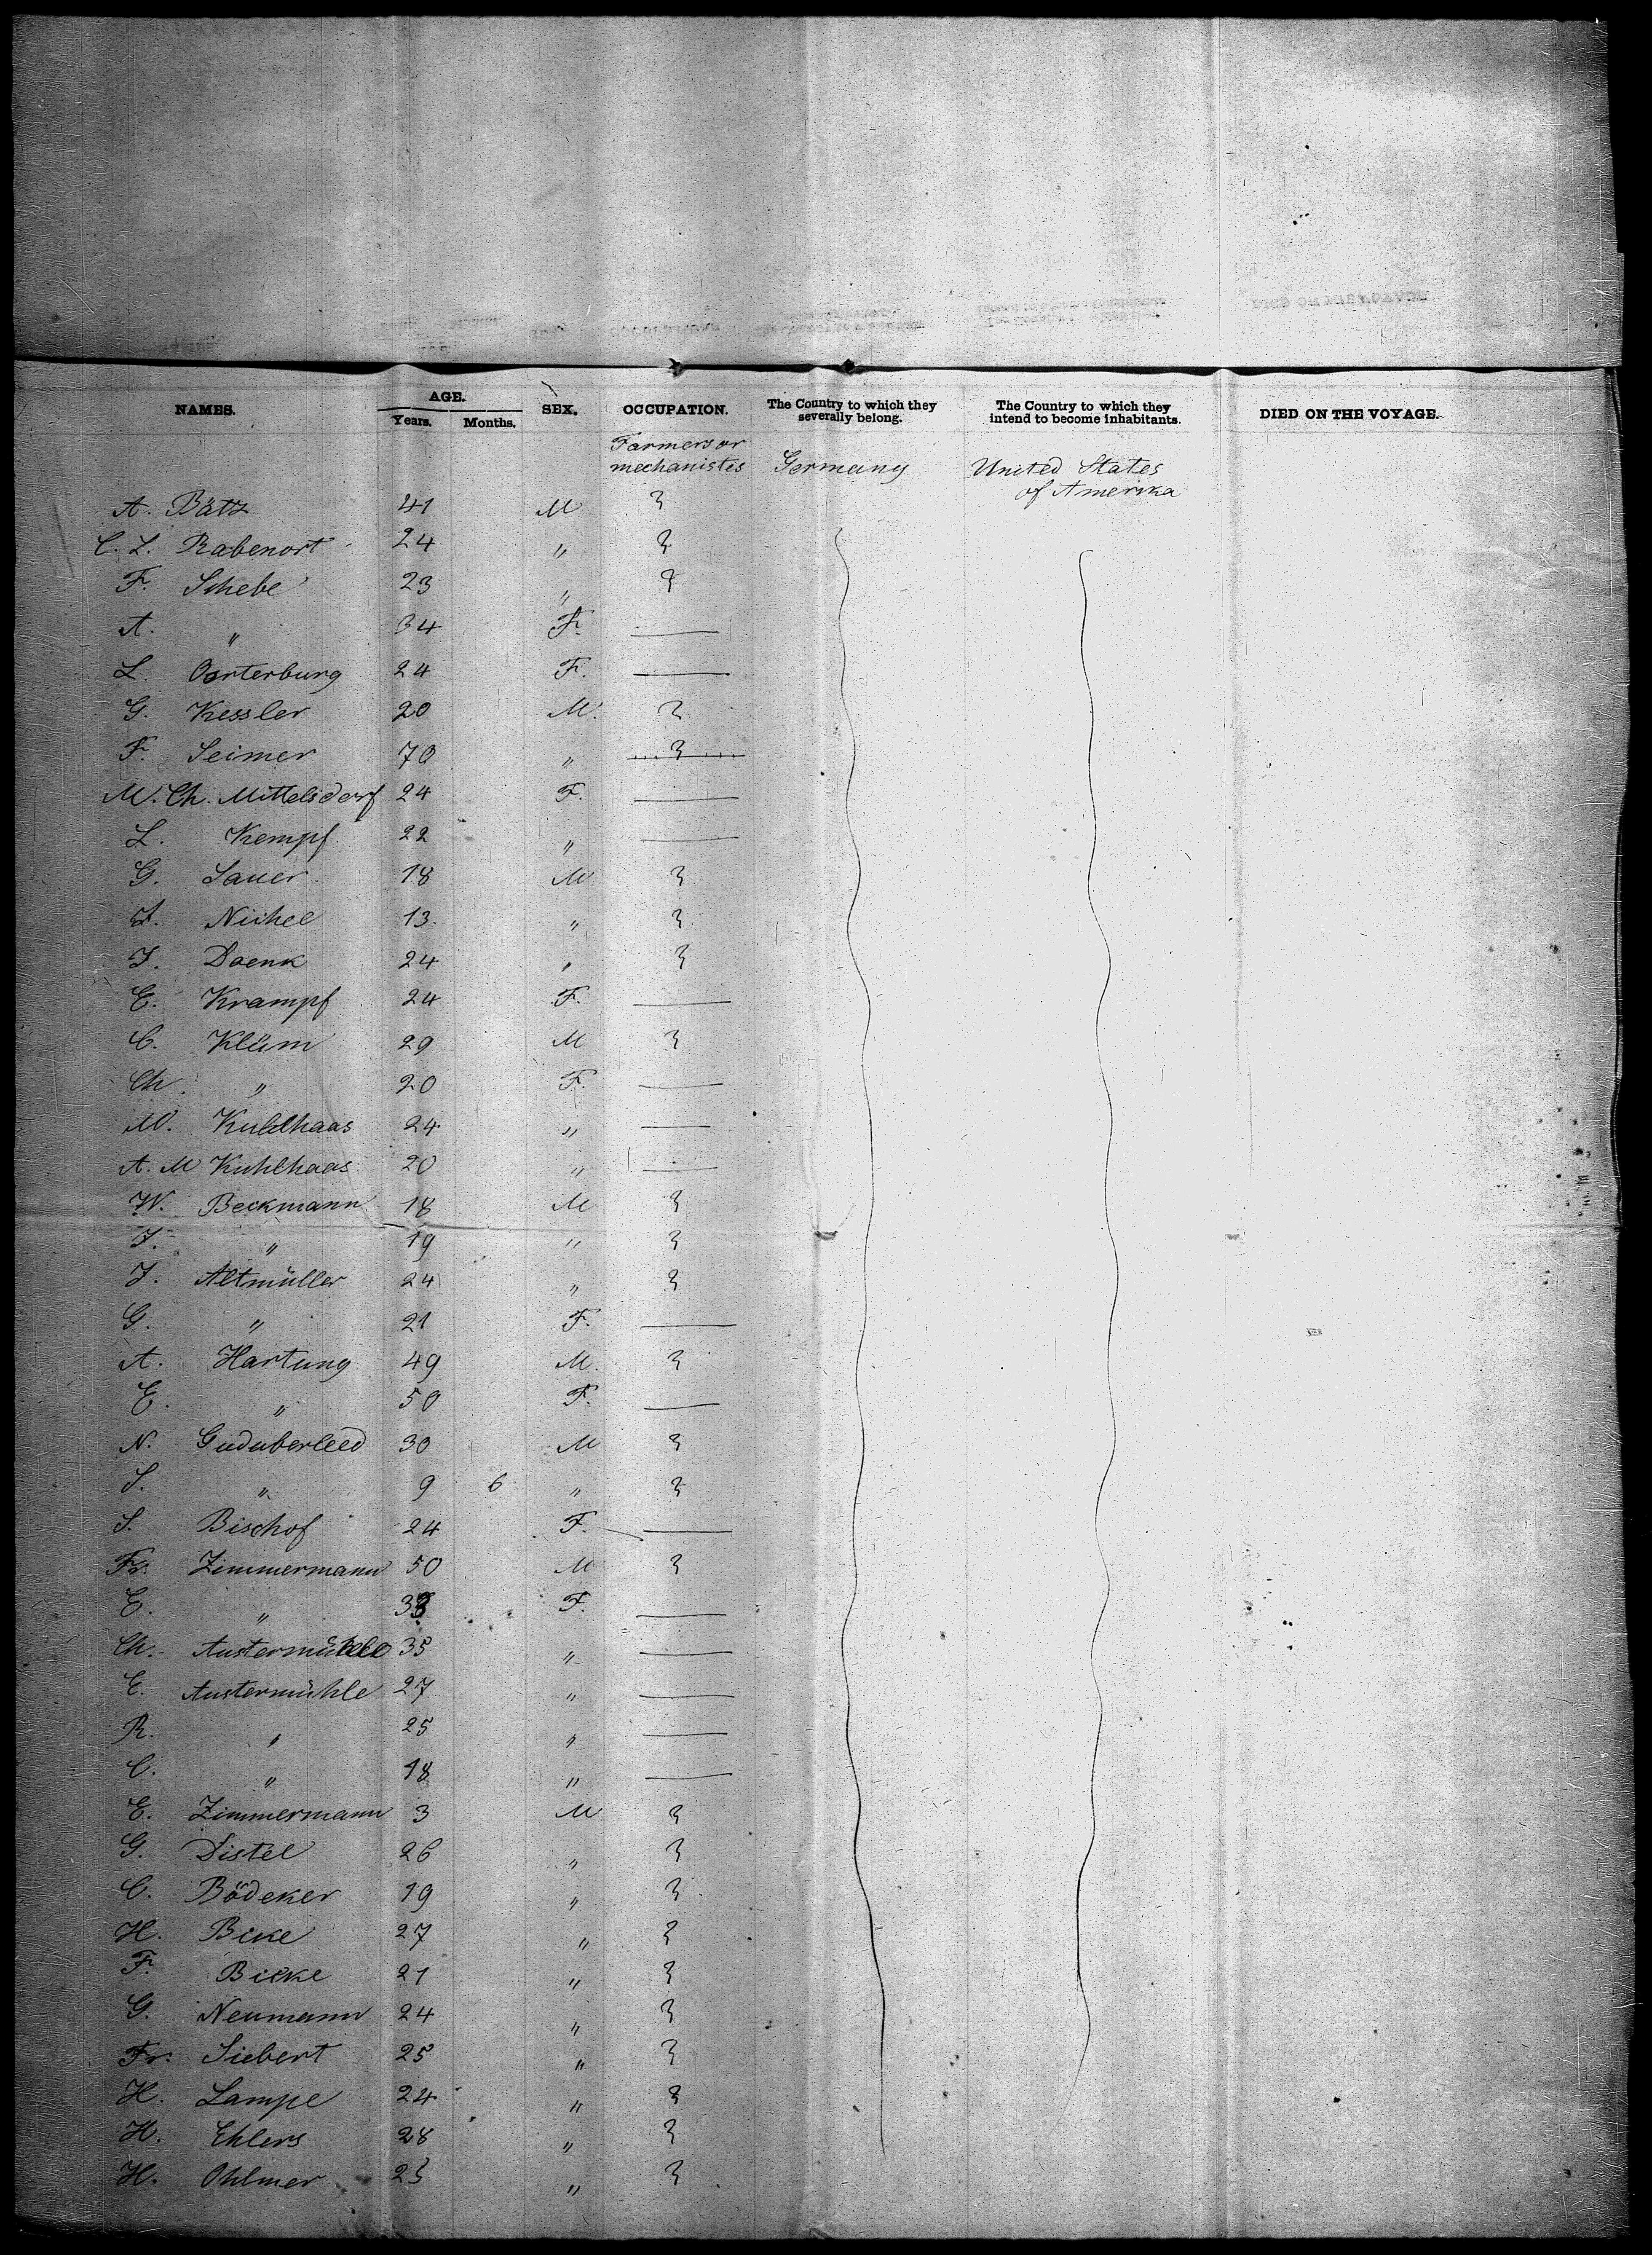 NAMES. AGE. SEX. OCCUPATION. The Country to which they severally belong. The Country to which they intend to become inhabitants. DIED ON THE VOYAGE.
Years. Months.
Farmers or mechanistes Germany United States of Amerika
A. Bätz 41 M
C. L. Rabenort 24 "
F. Schebe 23 "
A. " 34 F.
L. Osterburg 24 F.
G. Kessler 20 M.
F. Seimer 70 "
M. Ch. Mittelsdorf 24 F.
L. Kempf 22 "
G. Sauer 18 M
Nichel 13 "
J. Daenk 24 "
E. Krampf 24 F.
C. Klüm 29 M
Ch. " 20 F.
M. Kuhlhaas 24 "
A. M Kuhlhaas 20 "
W. Beckmann 18 M
J. " 19 "
J. Altmüller 24 "
G. " 21 F.
A. Hartung 49 M.
E. " 50 F.
N. Guduberleed 30 M
S. " 9 6 "
S. Bischof 24 F.
Fr. Zimmermann 50 M
E. " F.
Ch. Austermühle 35 "
E. Austermühle 27 "
R. " 25 "
C. " 18 "
E. Zimmermann 3 M
G. Distel 26 "
C. Bödeker 19 "
H. Bike 27 "
F. Bicke 21 "
G. Neumann 24 "
Fr. Siebert 25 "
H. Lampe 24 "
H. Ehlers 28 "
H. Ohlmer 23 "